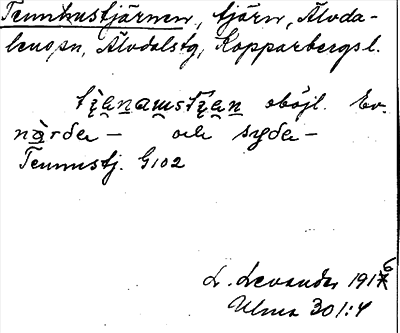 Tennhustjärnen, tjärn, Älvda-
lens sn, Älvdalstg, Kopparbergs l.
oböjl. Ev.
nårda – och syda –
Tennustj. G102
L. Levander 1916
Ulma 301:4